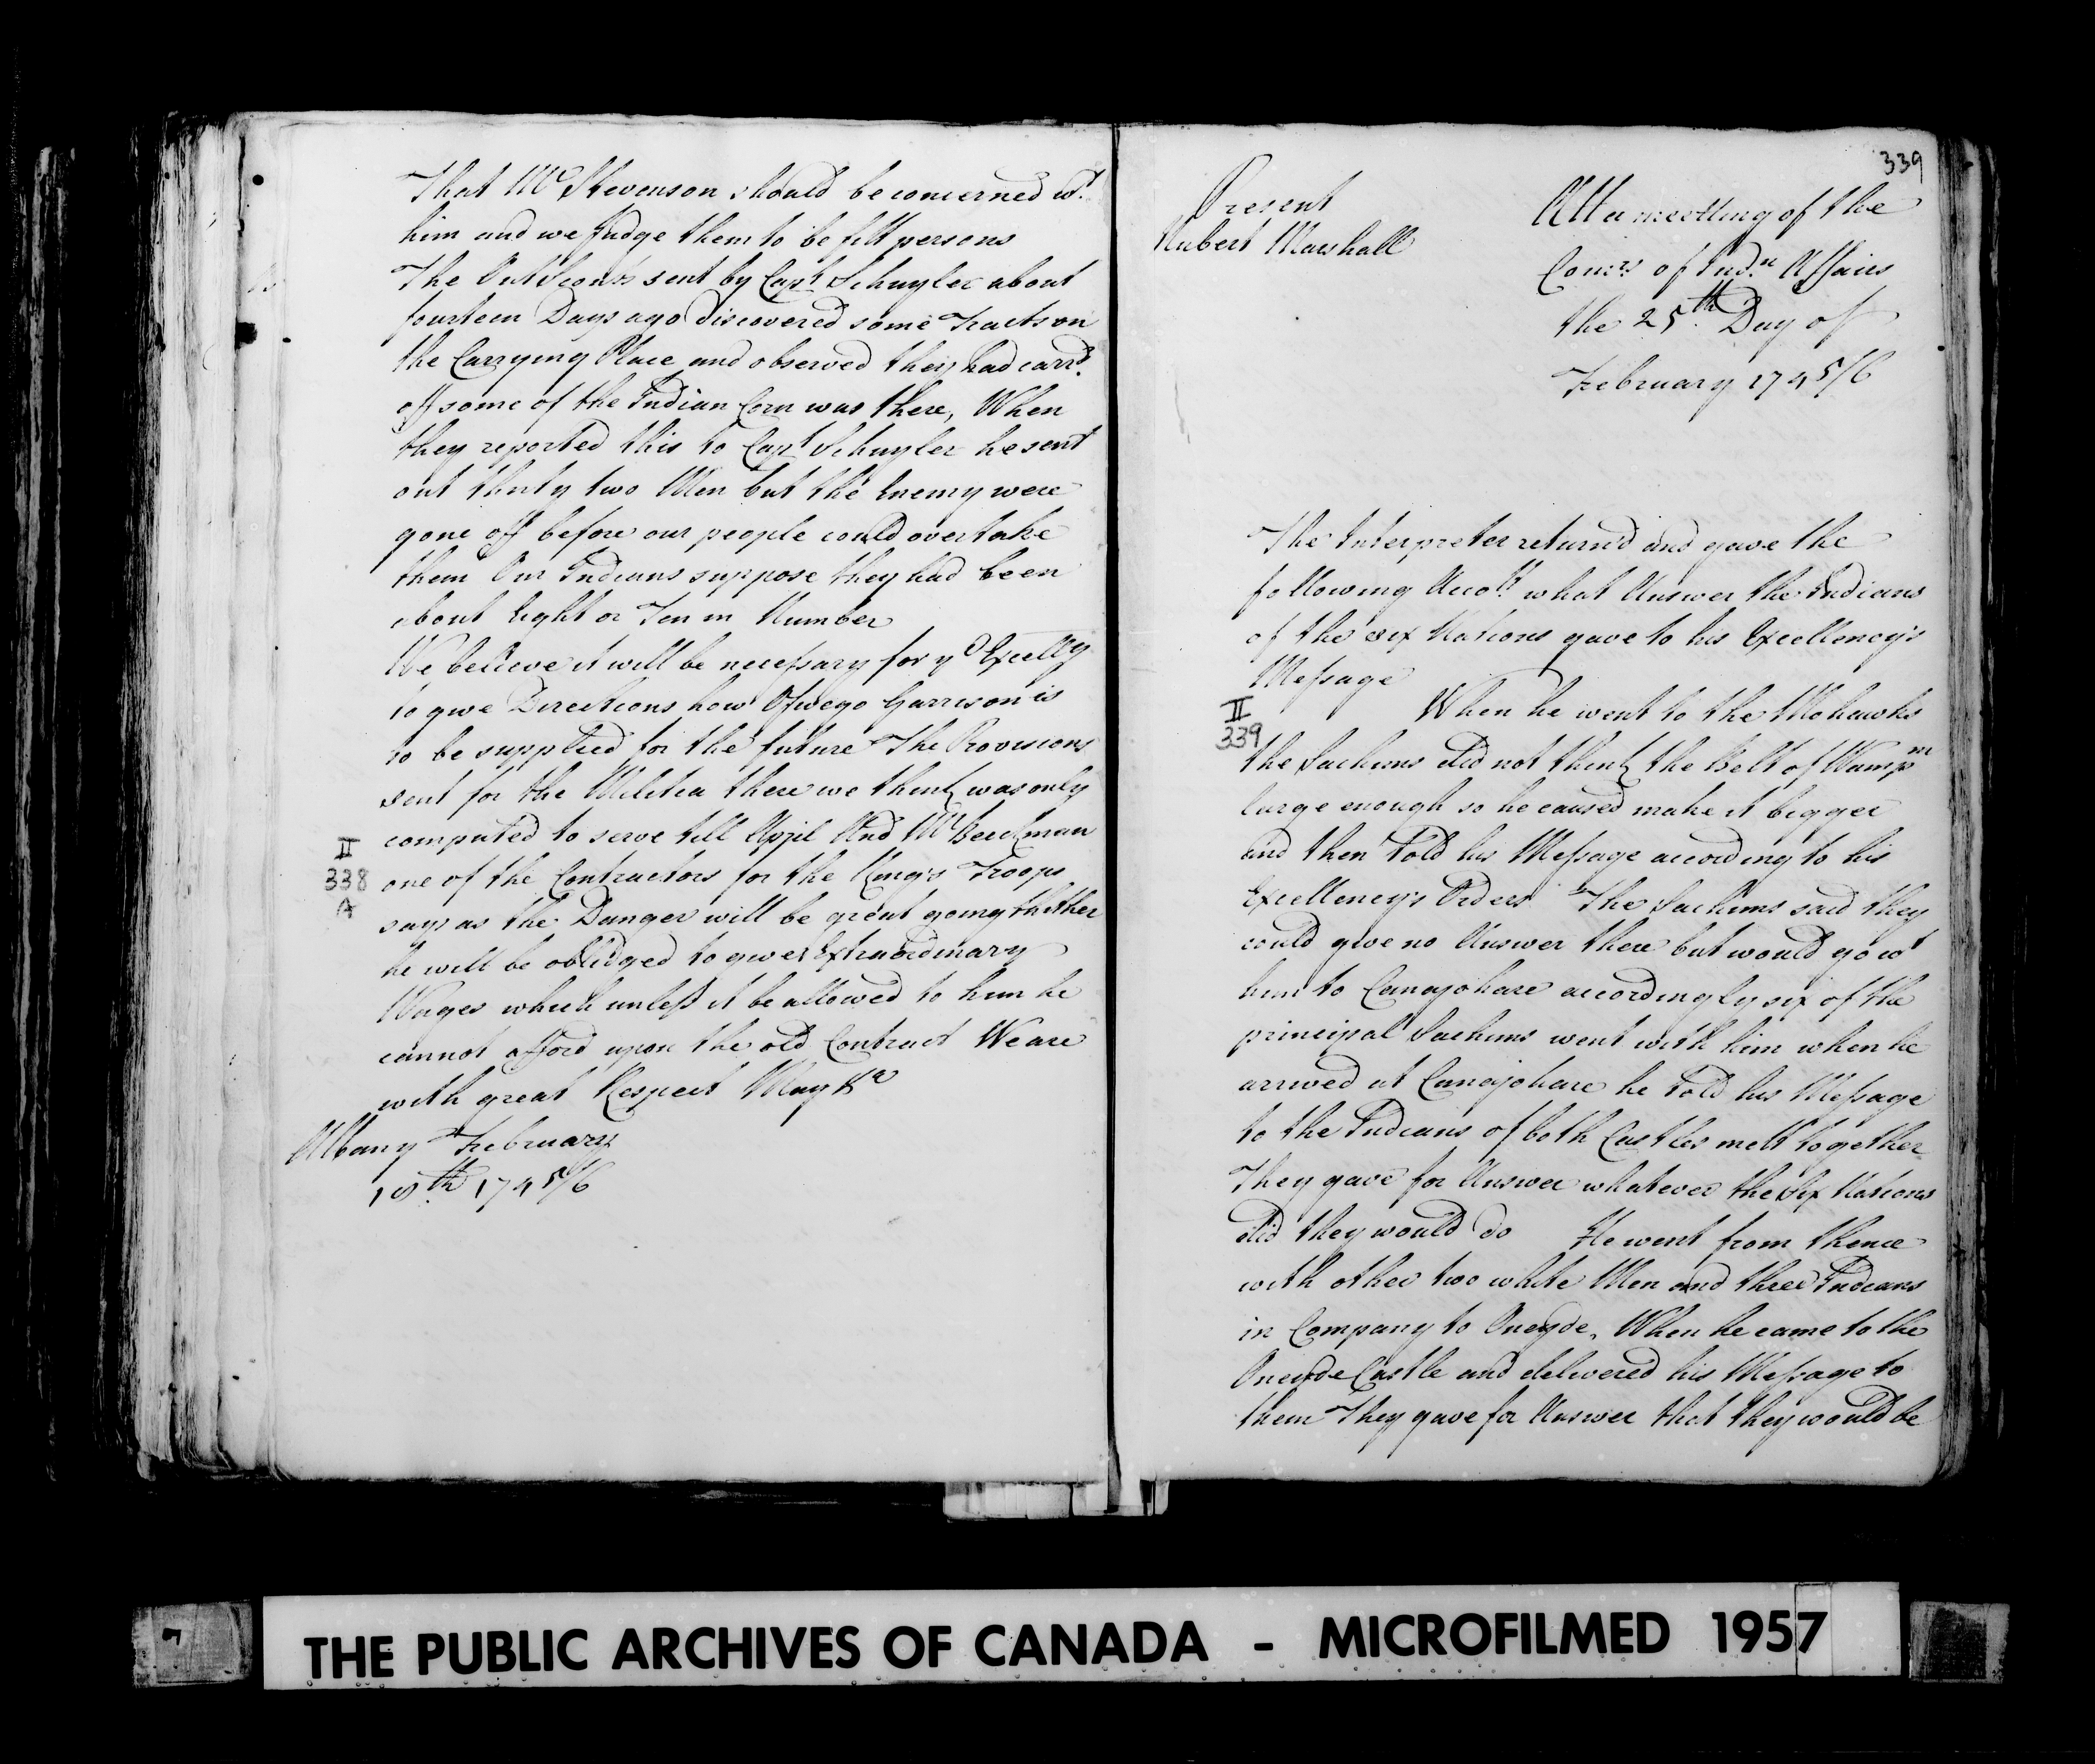 That Mr Stevenson should be concerned wt.
him and we Judge them to be fitt persons
The OutScouts sent by Capt Schuyler about
fourteen Days ago Discovered some Tracts on
the Carrying Place and observed they had carrd.
off some of the Indian Corn was there, When
they reported this to Capt Schuyler he sent
out thirty two Men but the Enemy were
gone off before our people could overtake
them Our Indians suppose they had been
about Eight or Ten in Number
We believe it will be necessary for yr Excelly
to give Directions how Oswego Garrison is
to be supplied for the future The Provisions
sent for the Militia there we think was only
computed to serve till Apjil And Mr Beeckman
II
338
A
one of the Contractors for the Kings Troops
says as the Danger will be great going thither
he will be oblidged to give Extraordinary
Wages which unless it be allowed to him he
cannot afford upon the old Contract We are
with great Respect May &a
Albany February
18th. 174 5/6
339
Present
Rubert Marshall
Att a meetting of the
Comrs. of Indn. Affairs
the 25th. Day of
February 174 5/6
The Interpreter return'd and gave the
following Accott. what Answer the Indians
of the six Nations gave to his Excellency's
Message
II
339
When he went to the Mohawks
the Sachims did not think the Belt of Wampm
large enough so he caused make it bigger
and then Told his Message according to his
Excellency's Orders The Sachims said they
could give no Answer there but would go wt
him to Canajohare accordingly six of the
principal Sachims went with him when he
arrived at Canajohare he Told his Message
to the Indians of both Castles mett together
They gave for Answer whatever the Six Nations
did they would do He went from thence
with other two white Men and three Indians
in Company to Oneyde, When he came to the
Oneyde Castle and delivered his Message to
them They gave for Answer that they would be
THE PUBLIC ARCHIVES OF CANADA - MICROFILMED 1957